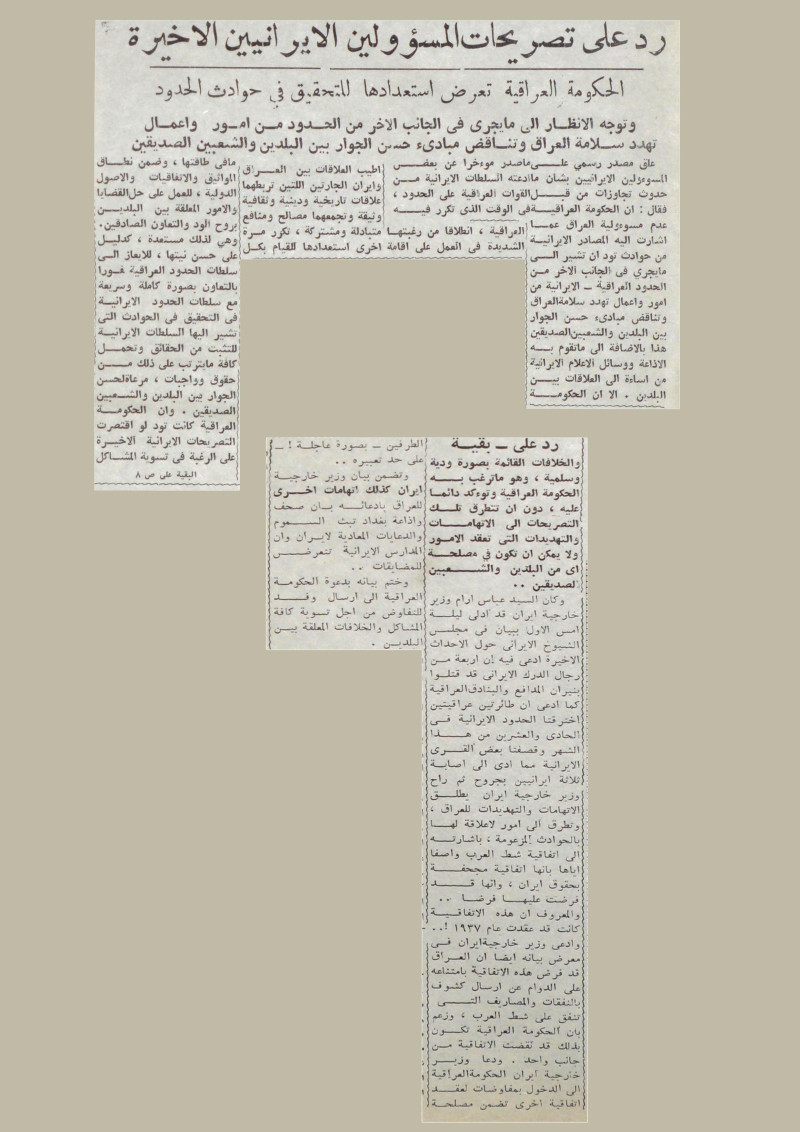 رد على تصريحات المسؤولين الايرانيين الاخيرة
الحكومة العراقية تعرض استعدادها للتحقيق في حوادث الحدود
وتوجه الانظار الى مايجرى فى الجانب الاخر من الحدود من امور واعمال
تهدد سلامة العراق وتناقض مبادىء حسن الجوار بين البلدين والشعبين الصديقين
علق مصدر رسمي على ماصدر موءخرا عن بعض
المسوءولين الايرانيين بشأن ماادعته السلطات الايرانية من
حدوث تجاوزات من قبل القوات العراقية على الحدود ،
فقال : ان الحكومة العراقية فى الوقت الذى تكرر فيه
عدم مسوءولية العراق عما
اشارت اليه المصادر الايرانية
من حوادث تود ان تشير الى
مايجري في الجانب الاخر من
الحدود العراقية ــ الايرانية من
امور واعمال تهدد سلامة العراق
وتناقض مبادىء حسن الجوار
بين البلدين والشعبين الصديقين
هذا بالاضافة الى ماتقوم به
الاذاعة ووسائل الاعلام الايرانية
من اساءة الى العلاقات بين
البلدين . الا ان الحكومة
العراقية ، انطلاقا من رغبتها
الشديدة في العمل على اقامة
اطيب العلاقات بين العراق
وايران الجارتين اللتين تربطهما
علاقات تاريخية ودينية وثقافية
وثيقة وتجمعهما مصالح ومنافع
متبادلة ومشتركة ، تكرر مرة
اخرى استعدادها للقيام بكل
مافى طاقتها ، وضمن نطاق
المواثيق والاتفاقيات والاصول
الدولية ، للعمل على حل القضايا
والامور المعلقة بين البلدين
بروح الود والتعاون الصادقين.
وهي لذلك مستعدة ، كدليل
على حسن نيتها ، للايعاز الى
سلطات الحدود العراقية فورا
بالتعاون بصورة كاملة وسريعة
مع سلطات الحدود الايرانية
فى التحقيق فى الحوادث التى
تشير اليها السلطات الايرانية
للتثبت من الحقائق وتحمل
كافة مايترتب على ذلك من
حقوق وواجبات ، مرعاة لحسن
الجوار بين البلدين والشعبين
الصديقين . وان الحكومة
العراقية كانت تود لو اقتصرت
التصريحات الايرانية الاخيرة
على الرغبة فى تسوية المشاكل
البقية على ص ٨
رد على ــ بقية
والخلافات القائمة بصورة ودية
وسلمية ، وهو ماترغب به
الحكومة العراقية وتوءكد دائما
عليه ، دون ان تتطرق تلك
التصريحات الى الاتهامات
والتهديدات التى تعقد الامور
ولا يمكن ان تكون في مصلحة
اى من البلدين والشعبين
الصديقين ..
وكان السيد عباس ارام وزير
خارجية ايران قد ادلى ليلة
امس الاول ببيان فى مجلس
الشيوخ الايرانى حول الاحداث
الاخيرة ادعى فيه ان اربعة من
رجال الدرك الايرانى قد قتلوا
بنيران المدافع والبنادق العراقية
كما ادعى ان طائرتين عراقيتين
اخترقتا الحدود الايرانية فى
الحادى والعشرين من هذا
الشهر وقصفتا بعض القرى
الايرانية مما ادى الى اصابة
ثلاثة ايرانيين بجروح ثم راح
وزير خارجية ايران يطلق
الاتهامات والتهديدات للعراق ،
وتطرق الى امور لاعلاقة لها
بالحوادث المزعومة ، باشارته
الى اتفاقية شط العرب واصفا
اياها بانها اتفاقية مجحفة
بحقوق ايران ، وانها قد
فرضت عليها فرضا ..
والمعروف ان هذه الاتفاقية
كانت قد عقدت عام ١٩٣٧ !..
وادعى وزير خارجية ايران فى
معرض بيانه ايضا ان العراق
قد فرض هذه الاتفاقية بامتناعه
على الدوام عن ارسال كشوف
بالنفقات والمصاريف التى
تنفق على شط العرب ، وزعم
بان الحكومة العراقية تكون
بذلك قد نقضت الاتفاقية من
جانب واحد . ودعا وزير
خارجية ايران الحكومة العراقية
الى الدخول بمفاوضات لعقد
اتفاقية اخرى تضمن مصلحة
الطرفين ــ بصورة عاجلة ! ــ
على حد تعبيره ..
وتضمن بيان وزير خارجية
ايران كذلك اتهامات اخرى
للعراق بادعائه بان صحف
واذاعة بغداد تبث السموم
والدعايات المعادية لايران وان
المدارس الايرانية تتعرض
للمضايقات ..
وختم بيانه بدعوة الحكومة
العراقية الى ارسال وفد
للتفاوض من اجل تسوية كافة
المشاكل والخلافات المعلقة بين
البلدين .